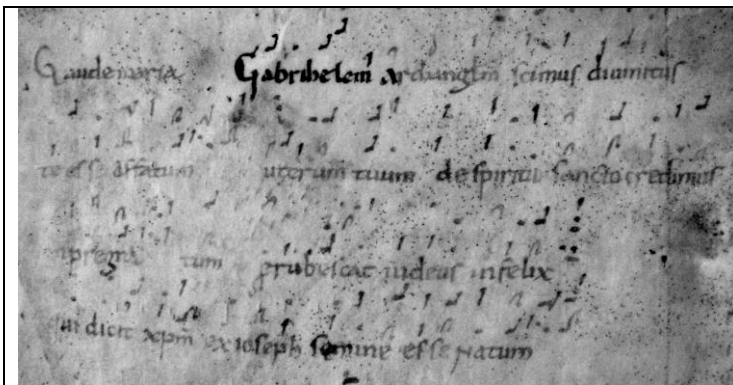 Gaude maria Gabrihelem Archanglm scimus diuinitus
te esse affatum uterum tuum de spiritu sancto credimus
inpregna tum erubescat iudeus infelix
qui dicit xpm ex ioseph semine esse natum